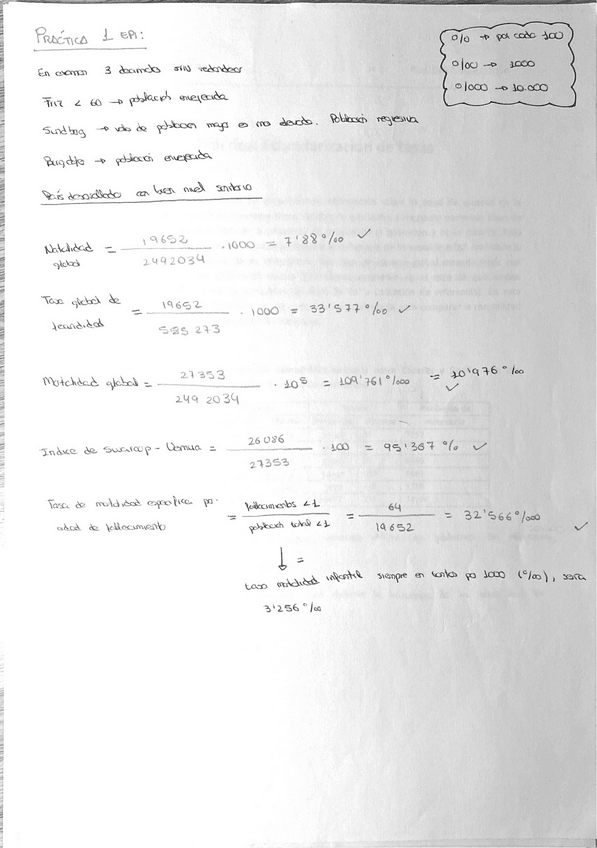 PRÁCTICA 1 EPI:
o/o → por cada 100
o/oo → 1000
o/ooo → 10.000
En examen 3 decimales sin redondear
Friz < 60 → población envejecida
Sundbarg → población mayor es más elevado. Población regresiva
Burgdofer → población envejecida
País desarrollado con buen nivel sanitario
Natalidad global = 19652 / 2492034 · 1000 = 7'88 o/oo ✓
Tasa global de fecundidad = 19652 / 585 273 · 1000 = 33'577 o/oo ✓
Mortalidad global = 27353 / 249 2034 · 10⁵ = 109'761 o/ooo = 10'976 o/oo ✓
Indice de Swaroop - Uemua = 26086 / 27353 · 100 = 95'367 o/o ✓
Tasa de mortalidad especifica por edad de fallecimiento = fallecimientos <1 / población total <1 = 64 / 19652 = 32'566 o/ooo ✓
↓ =
tasa mortalidad infantil siempre en tantos por 1000 (o/oo), sería
3'256 o/oo